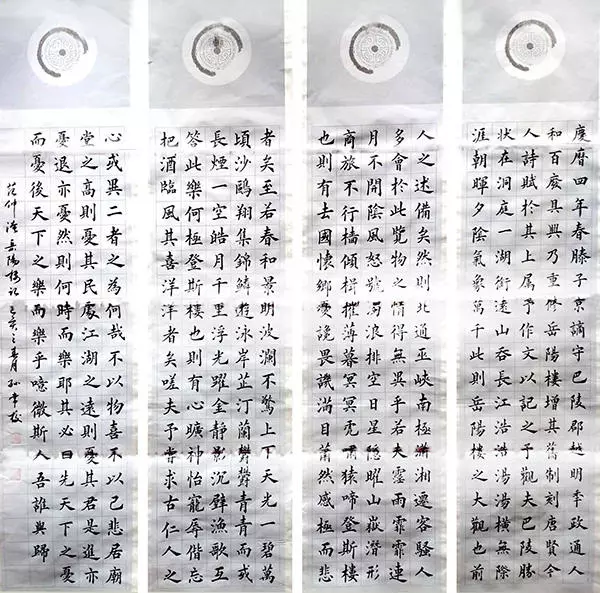 慶曆四年春滕子京謫守巴陵郡越明秊政通人
和百廢具興乃重修岳陽樓增其舊制刻唐賢今
人詩賦於其上屬予作文以記之予觀夫巴陵勝
狀在洞庭一湖銜遠山吞長江浩浩湯湯橫無際
涯朝暉夕陰氣象萬千此則岳陽樓之大觀也前
人之述備矣然則北通巫峽南極瀟湘遷客騷人
多會於此覽物之情得無異乎若夫霪雨霏霏連
月不開陰風怒號濁浪排空日星隱曜山嶽潛形
商旅不行檣傾楫摧薄暮冥冥虎嘯猿啼登斯樓
也則有去國懷鄉憂讒畏譏滿目蕭然感極而悲
者矣至若春和景明波瀾不驚上下天光一碧萬
頃沙鷗翔集錦鱗游泳岸芷汀蘭鬱鬱青青而或
長煙一空皓月千里浮光躍金靜影沉璧漁歌互
答此樂何極登斯樓也則有心曠神怡寵辱偕忘
把酒臨風其喜洋洋者矣嗟夫予嘗求古仁人之
心或異二者之為何哉不以物喜不以己悲居廟
堂之高則憂其民處江湖之遠則憂其君是進亦
憂退亦憂然則何時而樂耶其必曰先天下之憂
而憂後天下之樂而樂乎噫微斯人吾誰與歸
范仲淹岳陽樓記 己亥之春月 孫